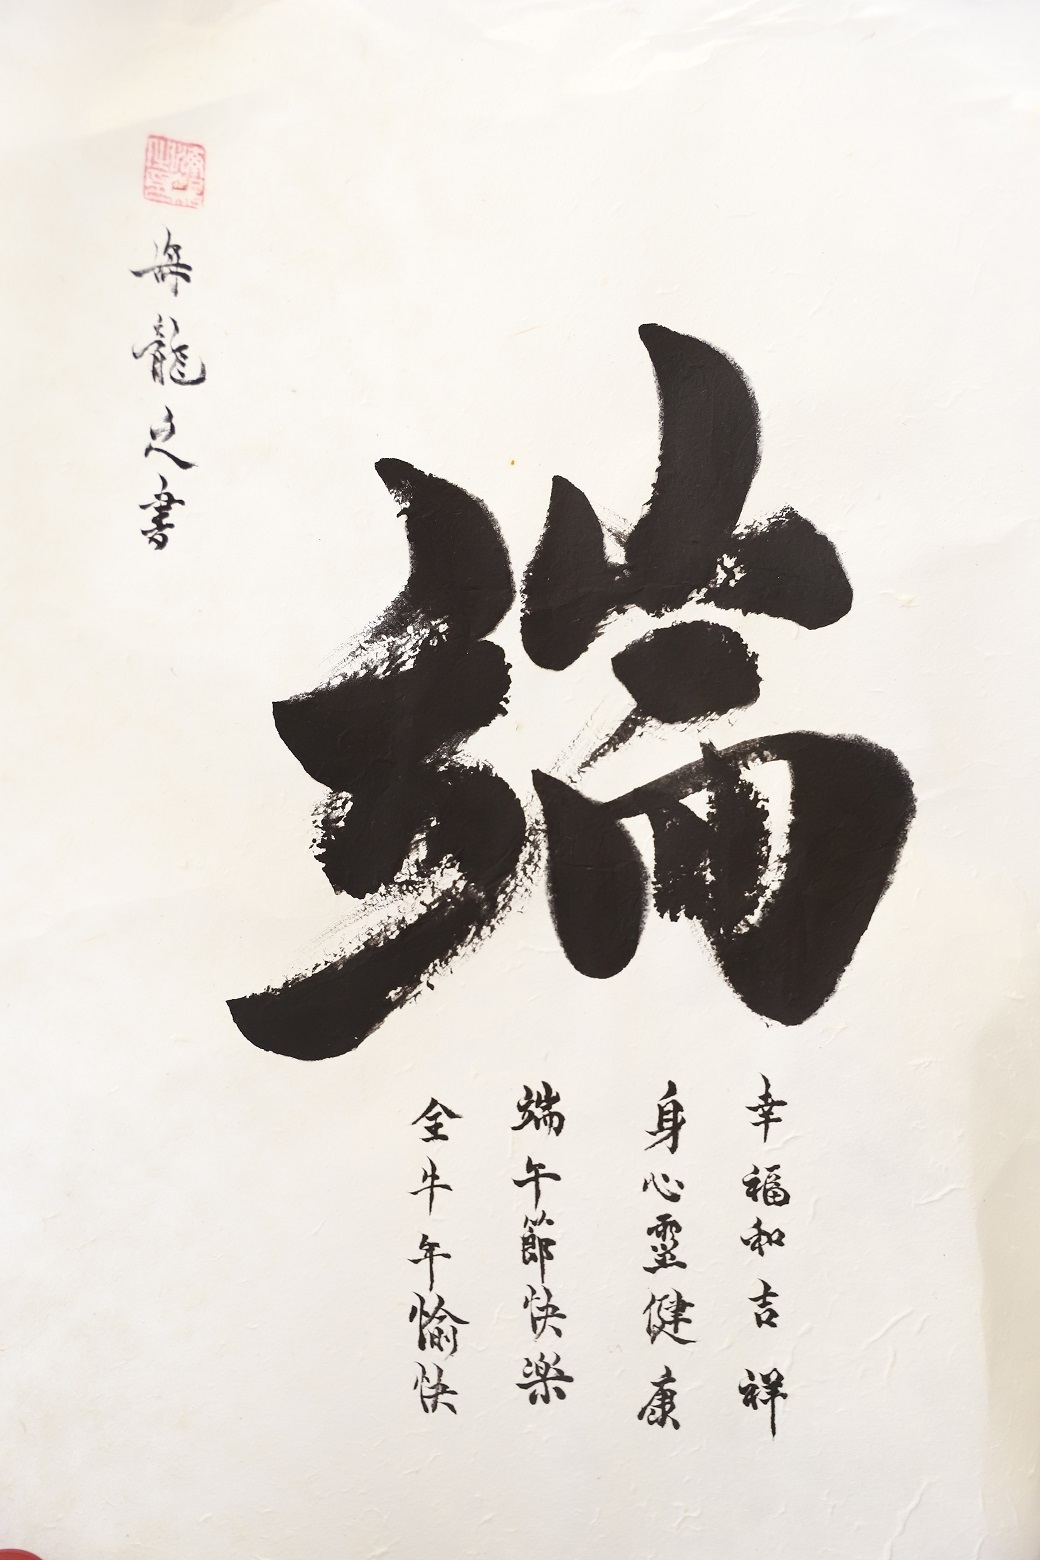 端
幸福和吉祥
身心靈健康
端午節快樂
全牛年愉快
龍之書